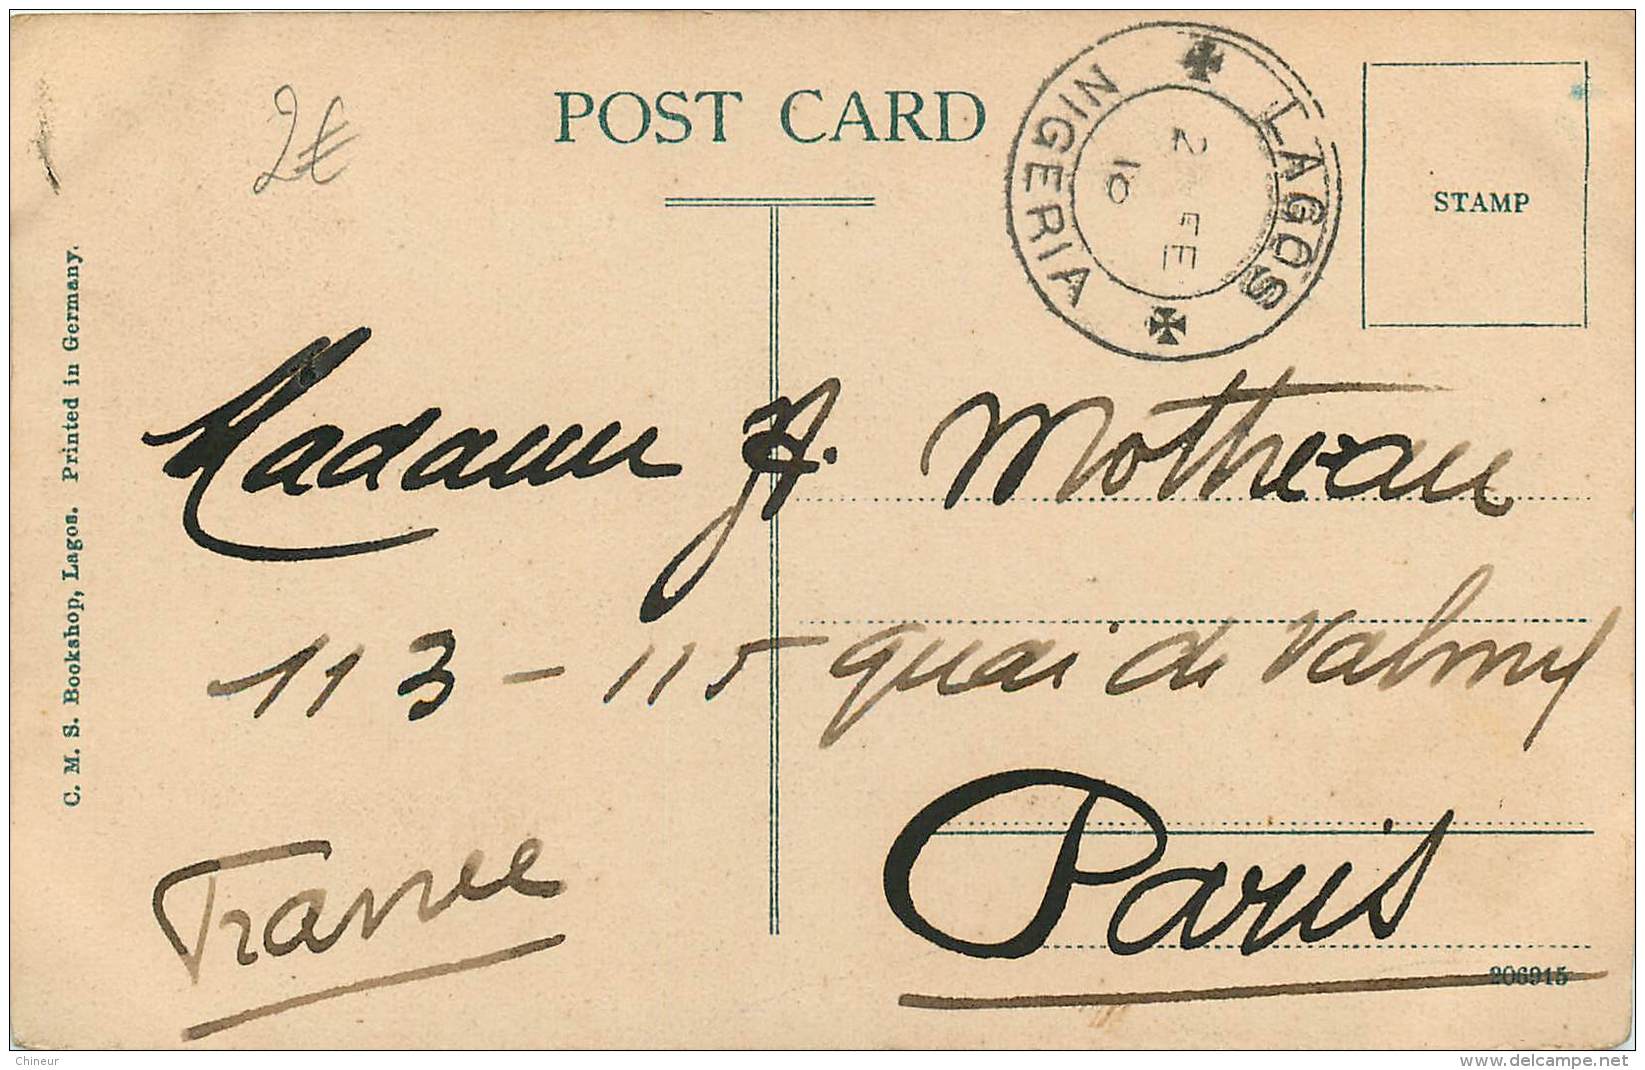 POST CARD
2€
LAGOS
NIGERIA
2 FE
16
STAMP
C. M. S. Bookshop, Lagos. Printed in Germany.
Madame A. Motheau
113-115 quai de Valmy
Paris
France
206915
Chineur
www.delcampe.net